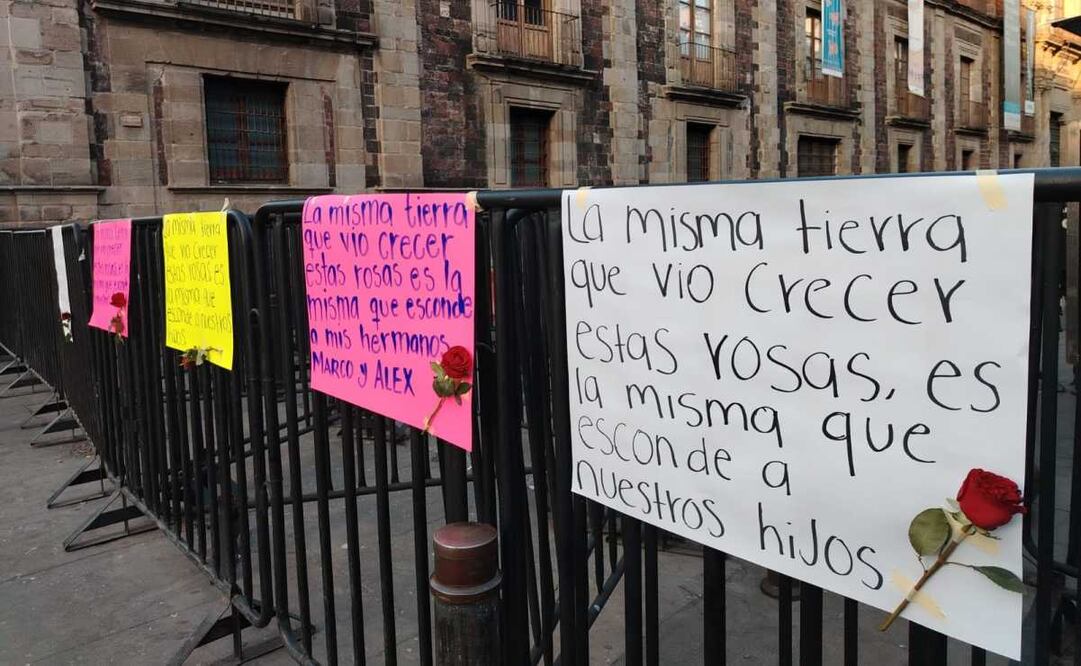 La misma tierra
que vio crecer
estas rosas es la
misma que
esconde a nuestros
hijos
La misma tierra
que vio crecer
estas rosas es la
misma que esconde
a mis hermanos
MARCO y ALEX
La misma tierra
que vio crecer
estas rosas, es
la misma que
esconde a
nuestros hijos